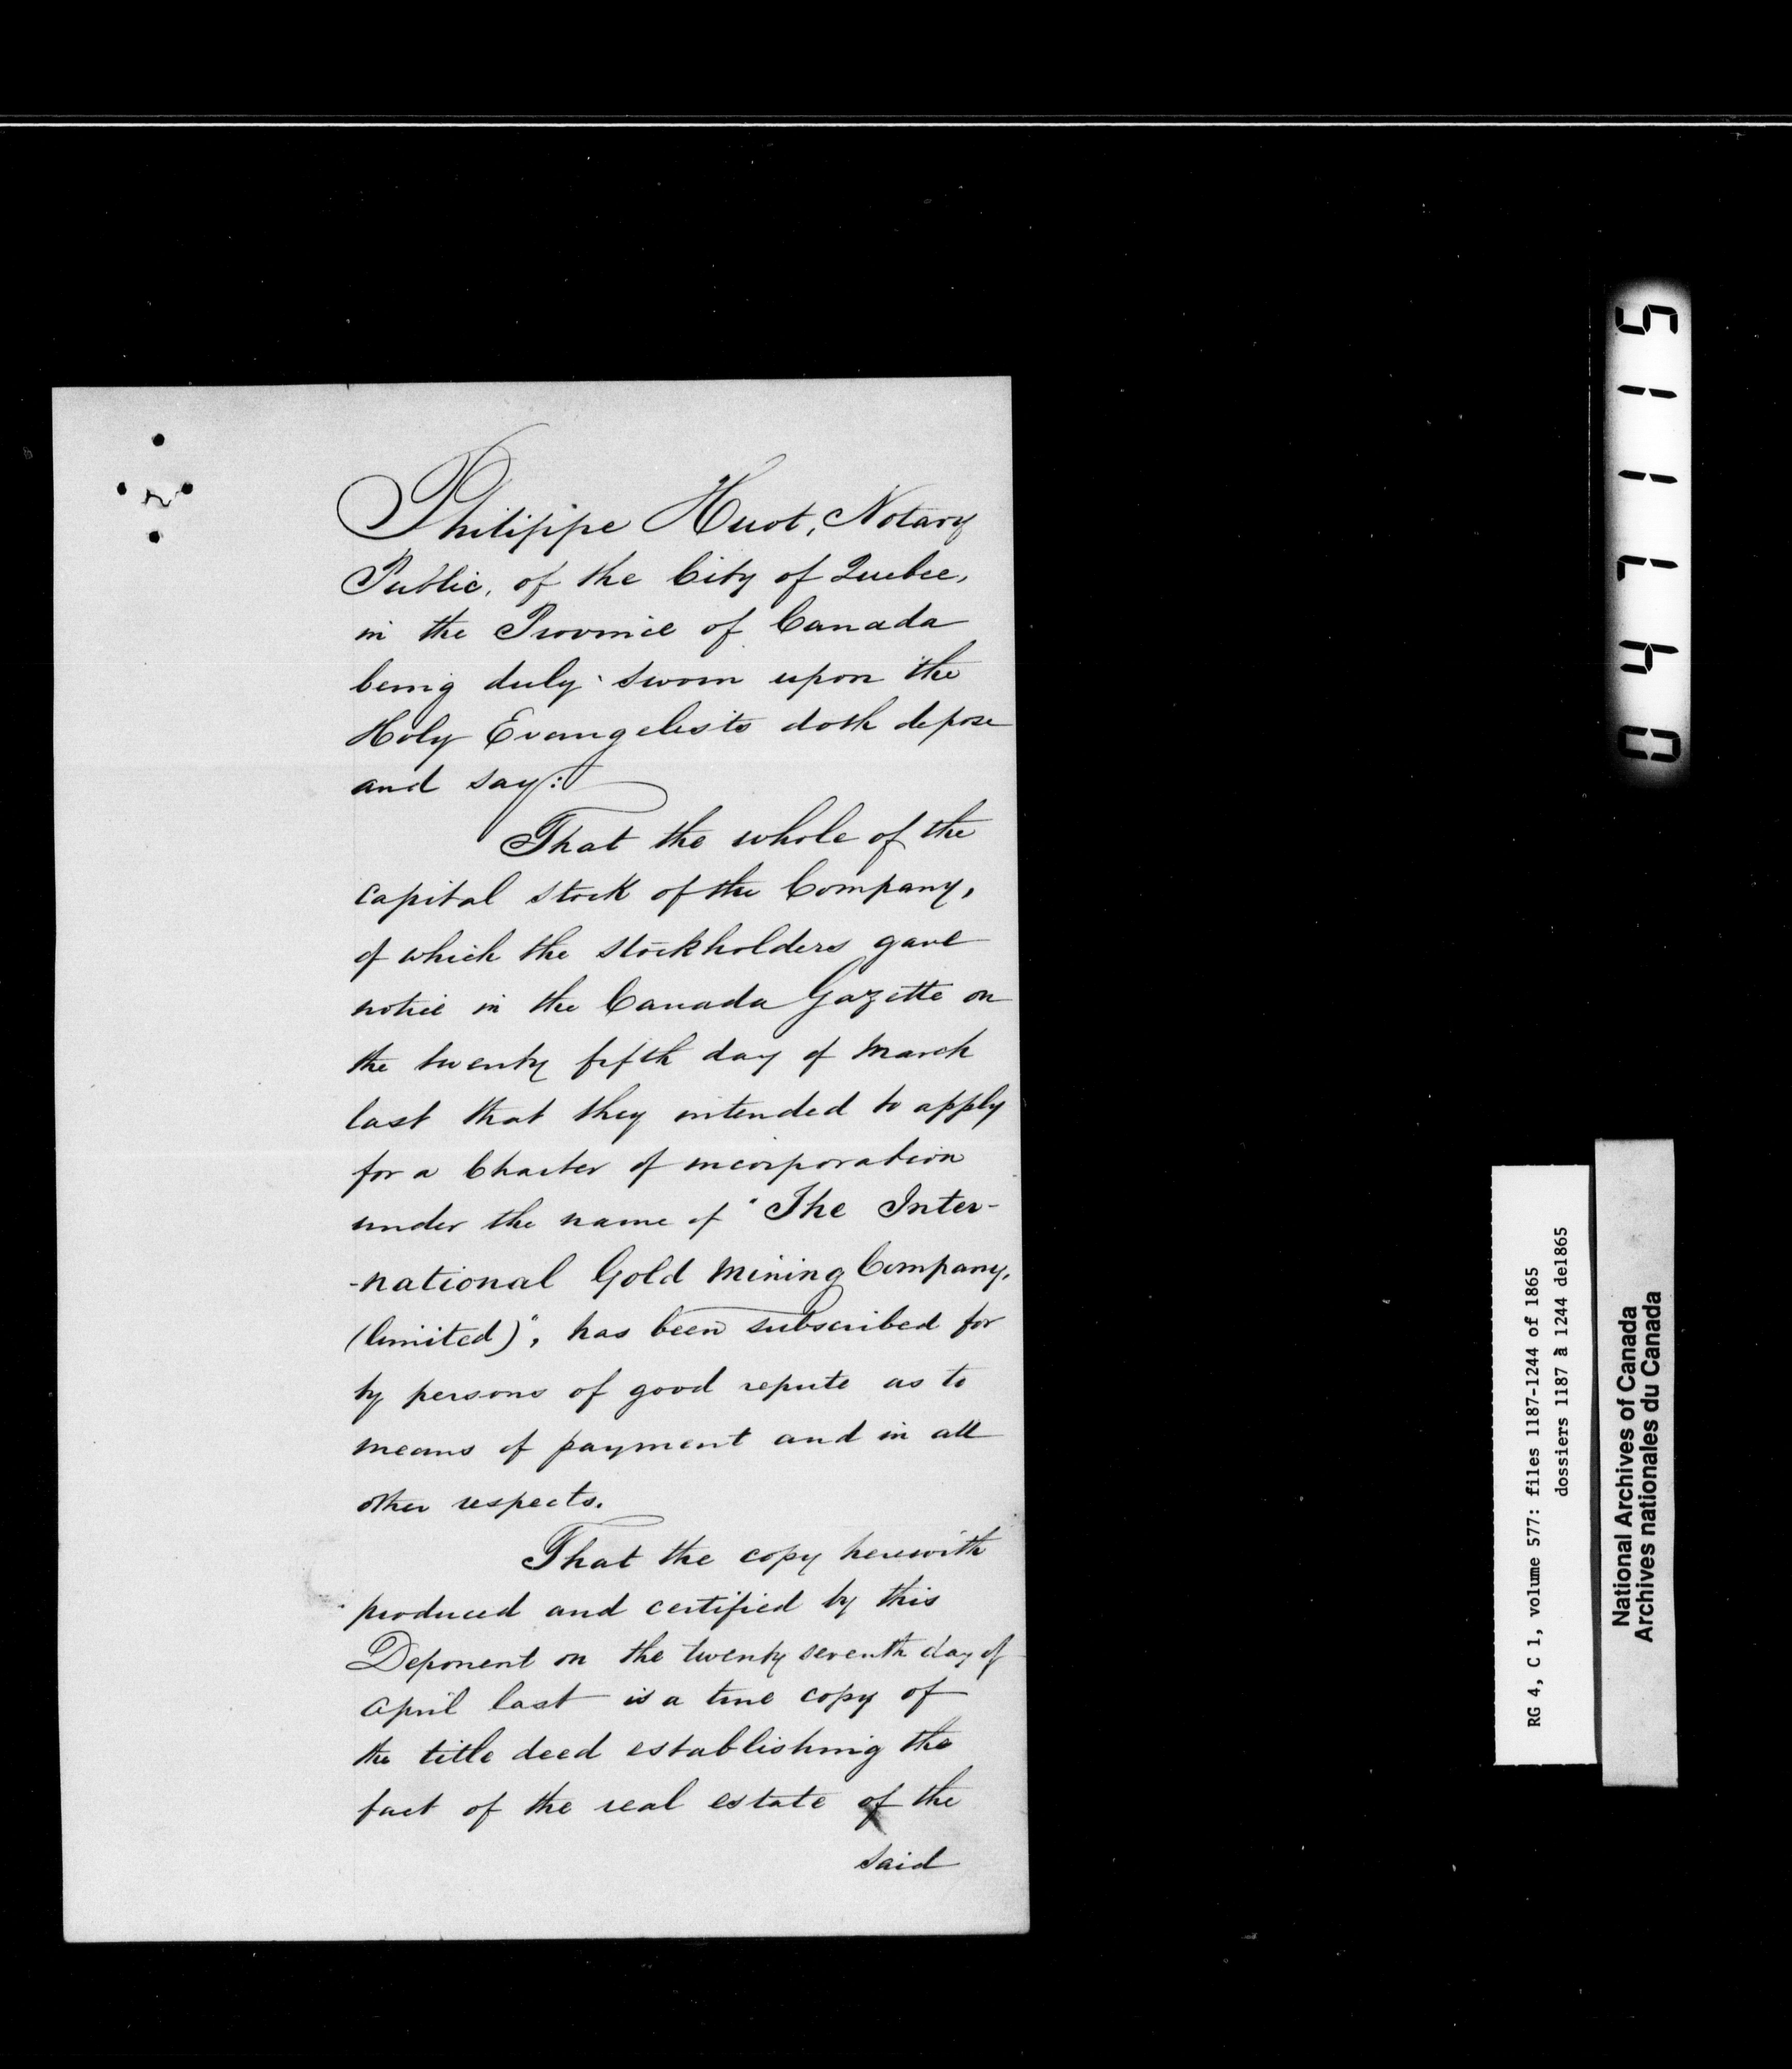 Philippe Huot, Notary
Public, of the City of Quebec,
in the Province of Canada
being duly sworn upon the
Holy Evangelists doth depose
and say:
That the whole of the
capital stock of the Company,
of which the stockholders gave
notice in the Canada Gazette on
the twenty fifth day of March
last that they intended to apply
for a Charter of incorporation
under the name of "The Inter-
-national Gold Mining Company,
(limited)", has been subscribed for
by persons of good repute as to
means of payment and in all
other respects.
That the copy herewith
produced and certified by this
Deponent on the twenty seventh day of
April last is a true copy of
the title deed establishing the
fact of the real estate of the
said
047115
RG 4, C 1, volume 577: files 1187-1244 of 1865
dossiers 1187 à 1244 de1865
National Archives of Canada
Archives nationales du Canada